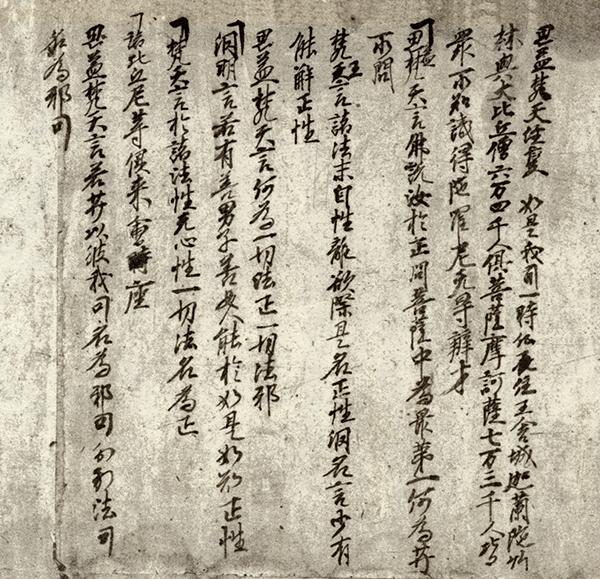 思益梵天経 如是我聞一時仏在住王舍城迦蘭陀竹
林與大比丘僧六万四千人俱菩薩摩訶薩七万三千人皆
眾所知識得陀羅尼无导辯才
思益梵天言佛說汝於正問菩薩中為最第一何為芔
所問
梵天言諸法末自性離欲際是名正性網名言少有
能解正性
思益梵天言何為一切法正一切法邪
網明言若有善男子善女人能於如是如知正性
梵天言於諸法性无心性一切法名為正
諸比丘尼等便来會座
思益梵天言若芔以彼我問名為邪問分別法問
名為邪問